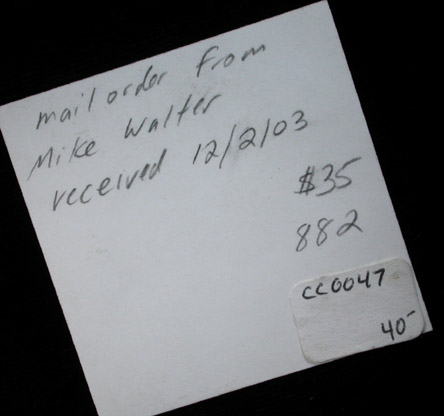 mail order from
Mike Walter
received 12/2/03
$35
882
CC0047
40-